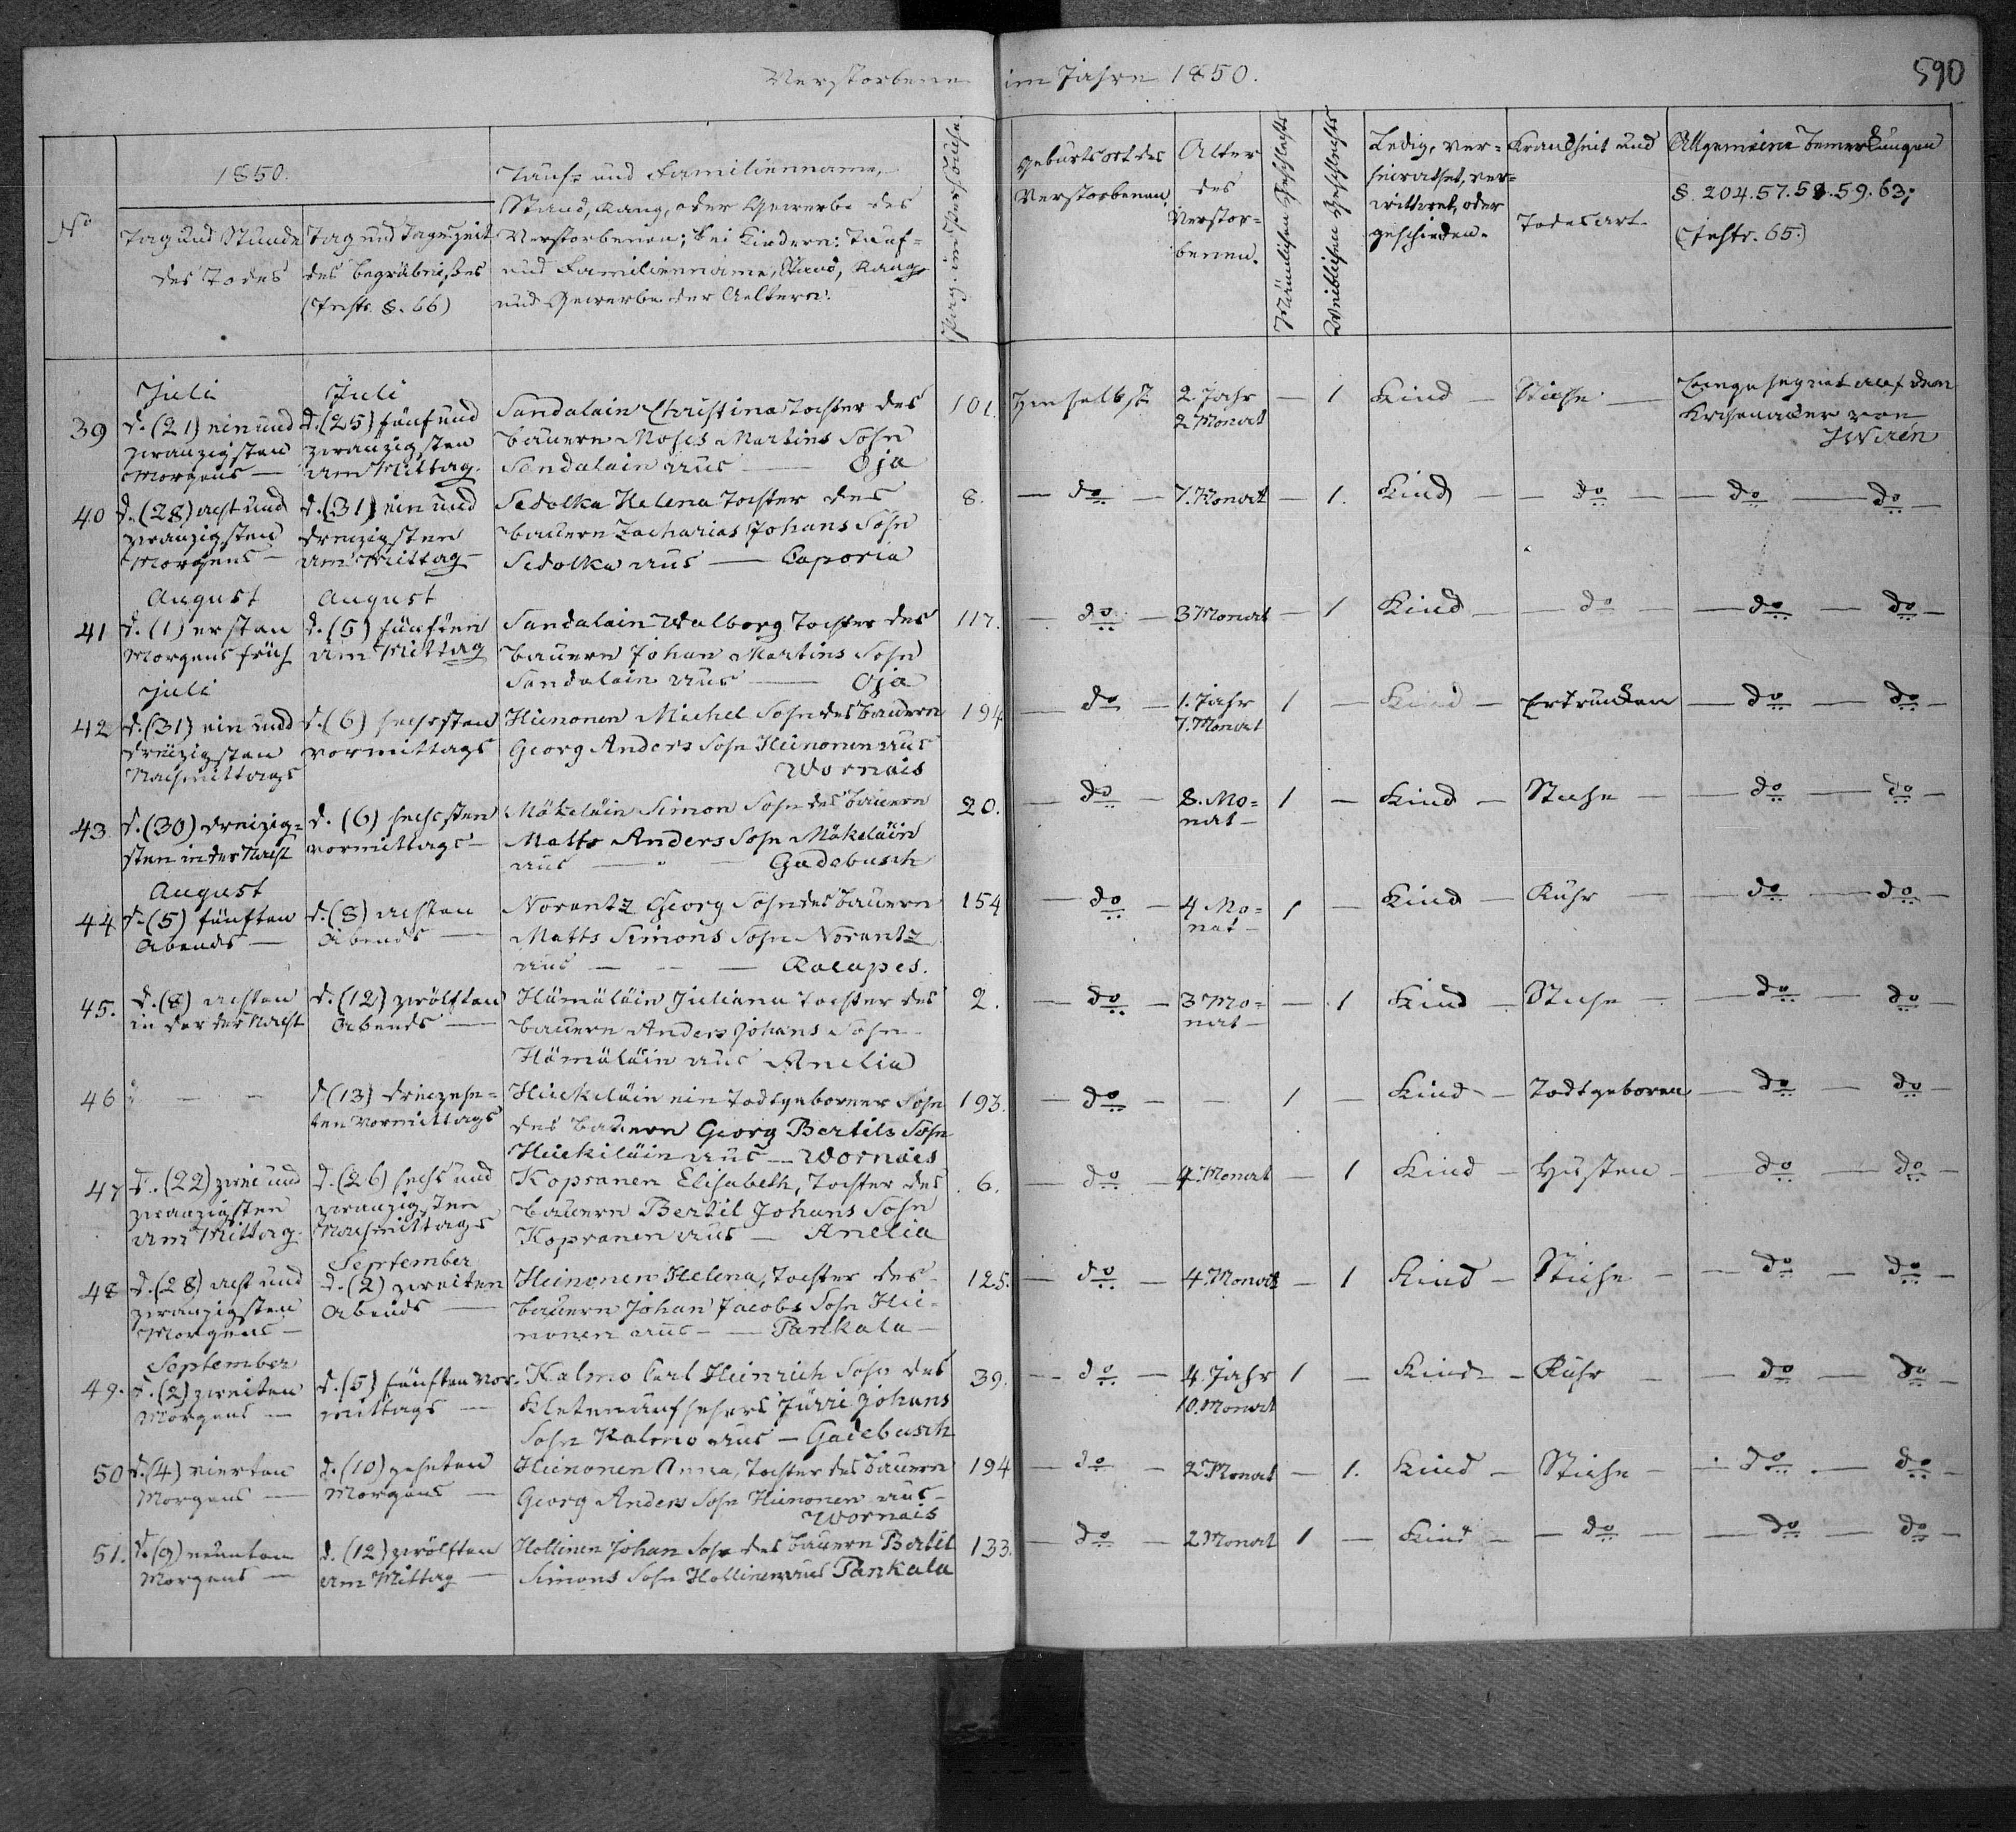 Verstorbene im Jahre 1850.
590
No
1850.
Tag und Stunde
des Todes
Tag und Tageszeit
des Begräbnißes
(Instr. §. 66)
Tauf- und Familienname,
Stand, Rang, oder Gewerbe des
Verstorbenen; bei Kindern: Tauf-
und Familienname, Stand, Rang
und Gewerbe der Aeltern.
Geburtsort des
Verstorbenen
Alter
des
Verstor-
benen.
Männlichen Geschlechts
Weiblichen Geschlechts
Ledig, ver-
heirathet, ver-
wittwet, oder
geschieden.
Krankheit und
Todesart
Allgemeine Bemerkungen
§. 204. 57. 58. 59. 63;
(Instr. 65.)
39
Juli
d. (21) ein und
zwanzigsten
Morgens —
Juli
d. (25) fünf und
zwanzigsten
am Mittag.
Sandalain Christina Tochter des
Bauern Moses Martins Sohn
Sandalain aus — Oja
101.
Hieselbst
2. Jahr
2 Monat
— 1
Kind —
Stiche —
Eingesegnet auf dem
Kirchenacker von
40
d. (28) acht und
zwanzigsten
Morgens —
d. (31) ein und
dreizigsten
am Mittag —
Sedolka Helena Tochter des
Bauern Zacharias Johans Sohn
Sedolka aus — Caporia
8.
— do —
7. Monat
— 1.
Kind —
— do —
— do — do —
41
August
d. (1) ersten
Morgens früh
August
d. (5) fünften
am Mittag
Sandalain Walborg Tochter des
Bauern Johan Martins Sohn
Sandalain aus — Oja
117.
— do —
3 Monat
— 1
Kind —
— do —
— do — do —
42
Juli
d. (31) ein und
dreizigsten
Nachmittags
d. (6) sechsten
vormittags
Heinonen Michel Sohn des Bauern
Georg Anders Sohn Heinonen aus
Wornais
194
— do —
1. Jahr
7. Monat
1 —
Kind —
Ertrunken
— do — do —
43.
d. (30) dreizig-
sten in der Nacht
d. (6) sechsten
vormittags —
Mäkeläin Simon Sohn des Bauern
Matts Anders Sohn Mäkeläin
aus — Gadebusch
20.
— do —
8. Mo-
nat —
1 —
Kind —
Stiche —
— do — do —
44
August
d. (5) fünften
Abends —
d. (8) achten
Abends —
Norantz Georg Sohn des Bauern
Matts Simons Sohn Norantz
aus — Racapes.
154
— do —
4 Mo-
nat —
1 —
Kind —
Ruhr —
— do — do —
45.
d. (8) achten
in der der Nacht
d. (12) zwölften
Abends —
Hämäläin Juliana Tochter des
Bauern Anders Johans Sohn
Hämäläin aus Anelia
2.
— do —
3 Mo-
nat —
— 1
Kind —
Stiche —
— do — do —
46
d. (13) dreizehn-
ten Vormittags
Heickeläin ein todtgeborner Sohn
des Bauern Georg Bertils Sohn
Heickiläin aus — Wornais
193.
— do —
1 —
Kind —
Todtgeboren
— do — do —
47
d. (22) zwei und
zwanzigsten
am Mittag.
d. (26) sechs und
zwanzigsten
Nachmittags
Kopranen Elisabeth, Tochter des
Bauern Bertil Johans Sohn
Kopranen aus — Anelia
6.
— do —
4. Monat
— 1
Kind —
Husten —
— do — do —
48
d. (28) acht und
zwanzigsten
Morgens —
September
d. (2) zweiten
Abends —
Heinonen Helena, Tochter des
Bauern Johan Jacobs Sohn Hei-
nonen aus — Pankala —
125.
— do —
4. Monat
— 1
Kind —
Stiche —
— do — do —
49.
September
d. (2) zweiten
Morgens —
d. (5) fünften Vor-
mittags —
Kalmo Carl Heinrich Sohn des
Kletenaufsehers Jürri Johans
Sohn Kalmo aus — Gadebusch
39.
— do —
4. Jahr
10. Monat
1 —
Kind —
Ruhr —
— do — do —
50
d. (4) vierten
Morgens —
d. (10) zehnten
Morgens —
Heinonen Anna, Tochter des Bauern
Georg Anders Sohn Heinonen aus —
Wornais
194
— do —
2 Monat
— 1.
Kind —
Stiche —
— do — do —
51.
d. (9) neunten
Morgens —
d. (12) zwölften
am Mittag —
Hollinen Johan Sohn des Bauern Bertil
Simons Sohn Hollinen aus Pankala
133.
— do —
2 Monat
1 —
Kind —
— do —
— do — do —